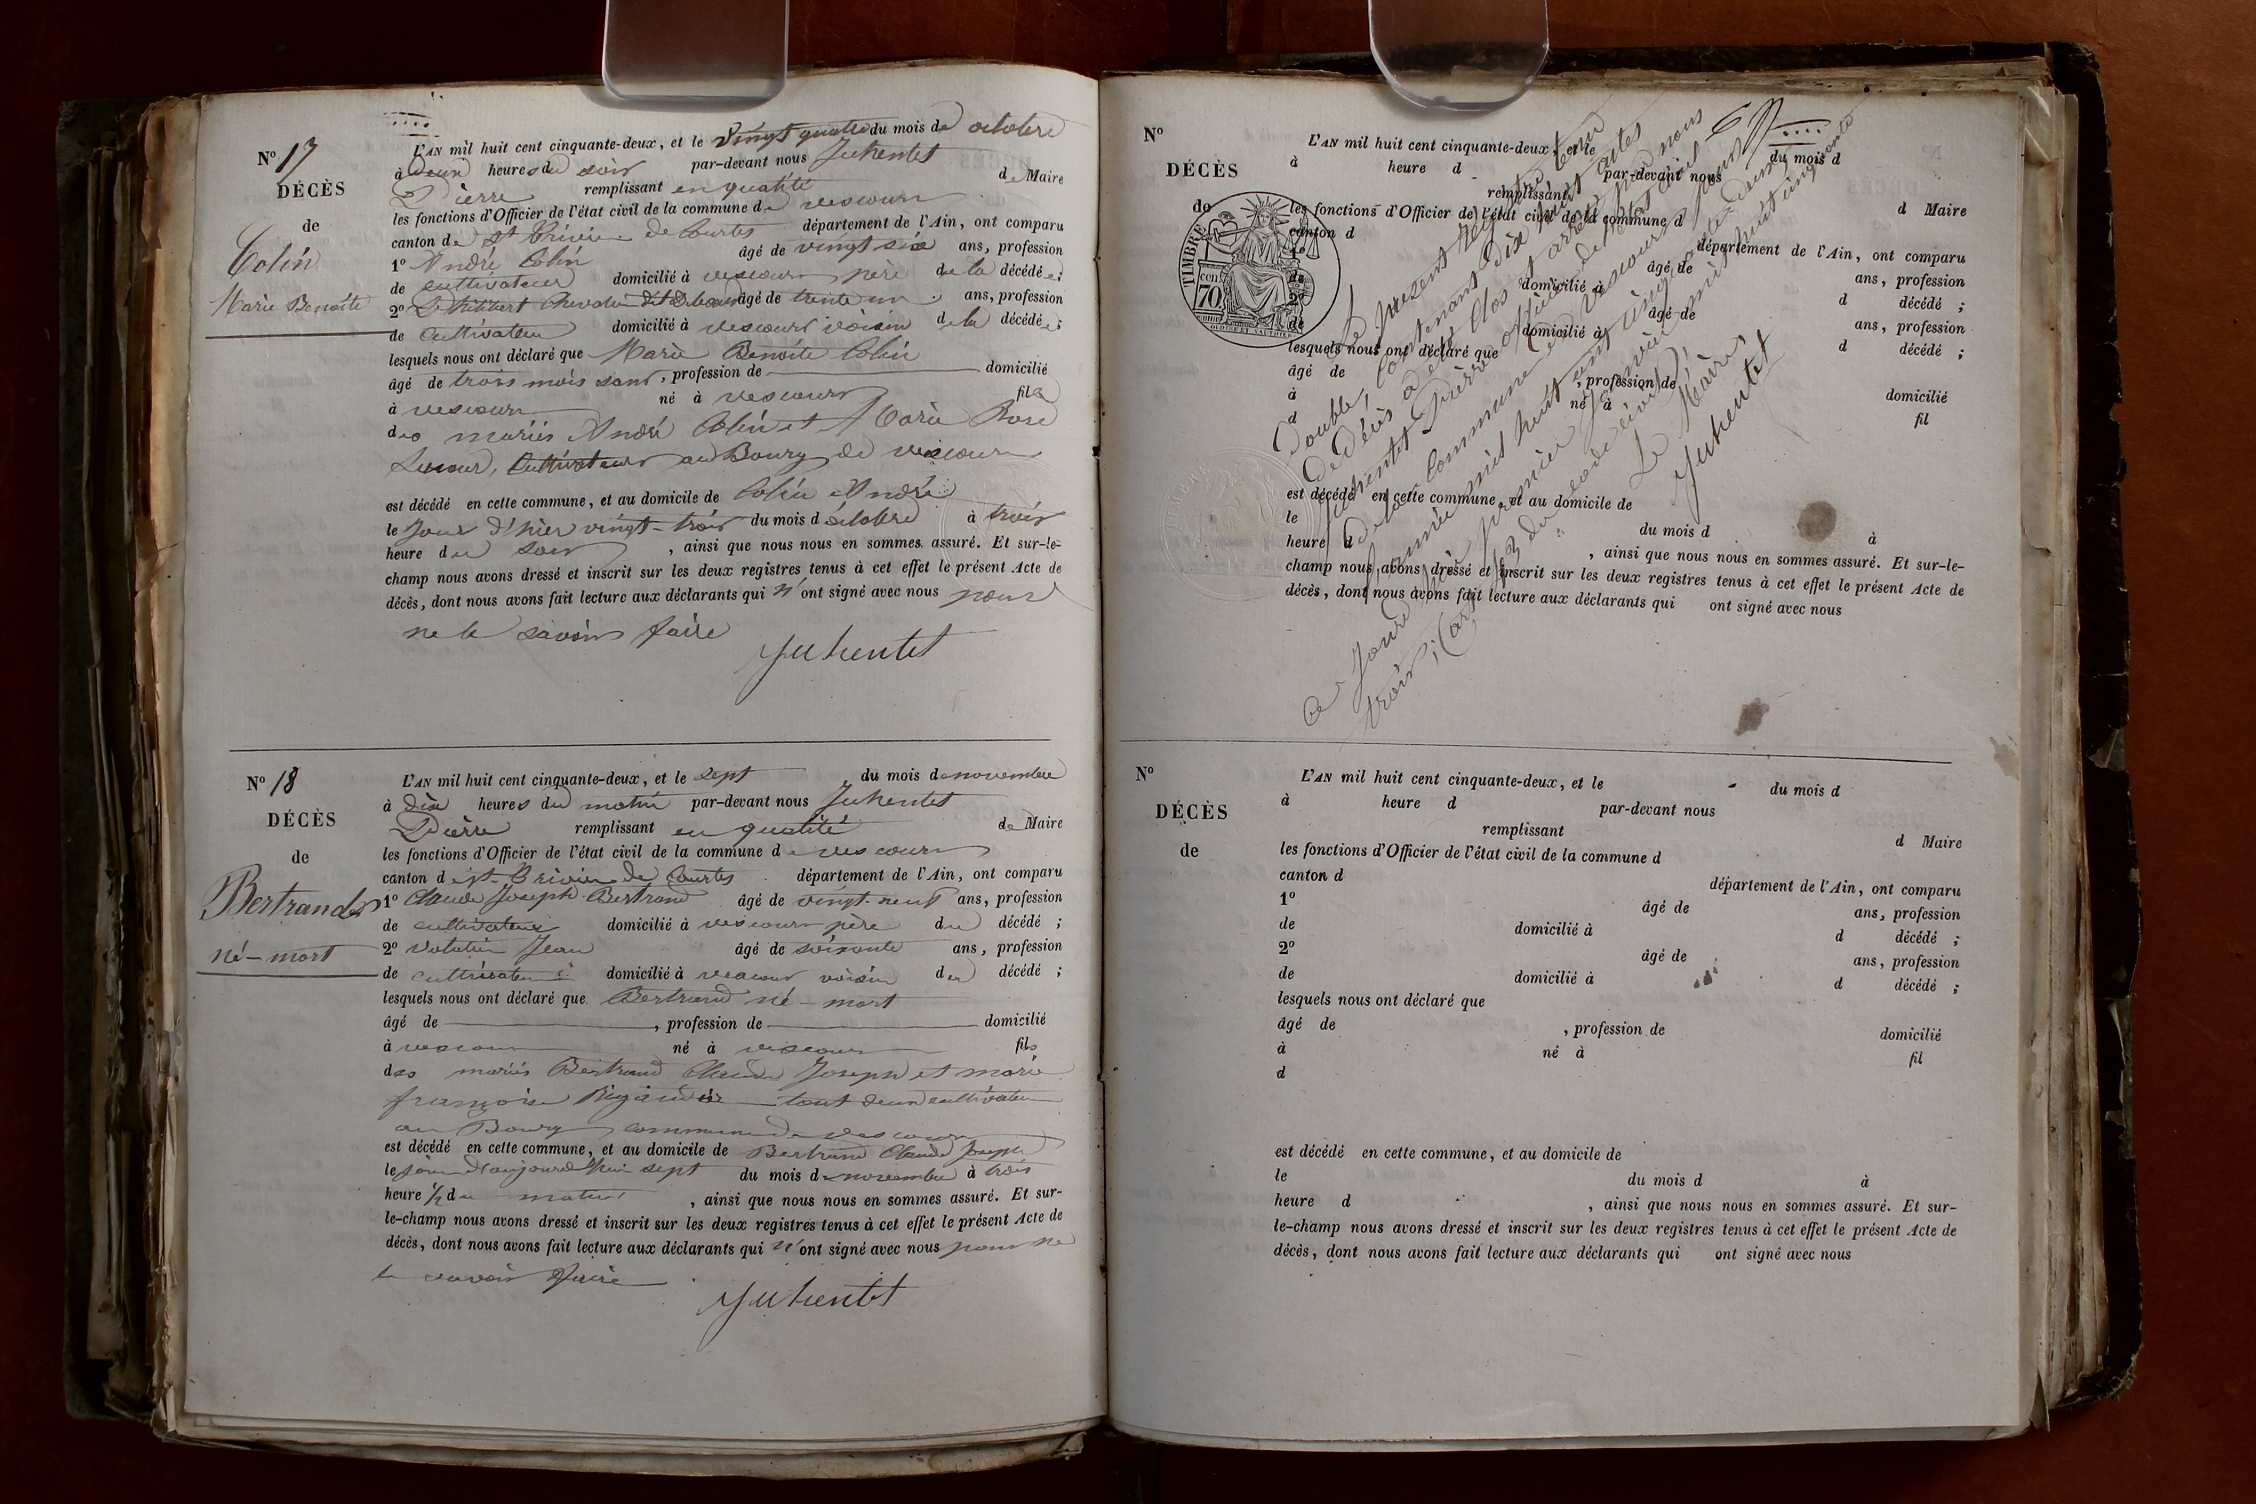 N° 17
DÉCÈS
de
Colin
Marie Benoite
L'AN mil huit cent cinquante-deux, et le vingt quatre du mois de octobre
à deux heures du soir par-devant nous Juhentet
Pierre remplissant en qualité de Maire
les fonctions d'Officier de l'état civil de la commune de vescours
canton de St Trivier de Courtes département de l'Ain, ont comparu
1° André Colin âgé de vingt six ans, profession
de cultivateur domicilié à vescours père de la décédée ;
2° âgé de trente un ans, profession
de cultivateur domicilié à vescours voisin de la décédée ;
lesquels nous ont déclaré que Marie Benoite Colin
âgé de trois mois , profession de domicilié
à vescours né à vescours fille
des mariés André Colin et Marie Rose
cultivateurs au Bourg de vescours
est décédé en cette commune, et au domicile de Colin André
le jour d'hier vingt-trois du mois d'octobre à trois
heure du soir , ainsi que nous nous en sommes assuré. Et sur-le-
champ nous avons dressé et inscrit sur les deux registres tenus à cet effet le présent Acte de
décès, dont nous avons fait lecture aux déclarants qui n'ont signé avec nous pour
ne le savoir faire
Juhentet
N° 18
DÉCÈS
de
Bertrand
né-mort
L'AN mil huit cent cinquante-deux, et le sept du mois de novembre
à dix heures du matin par-devant nous Juhentet
Pierre remplissant en qualité de Maire
les fonctions d'Officier de l'état civil de la commune de vescours
canton de St Trivier de Courtes département de l'Ain, ont comparu
1° Claude Joseph Bertrand âgé de vingt-neuf ans, profession
de cultivateur domicilié à vescours père du décédé ;
2° Jean âgé de soixante ans, profession
de cultivateur domicilié à vescours voisin du décédé ;
lesquels nous ont déclaré que Bertrand né-mort
âgé de , profession de domicilié
à vescours né à vescours fils
des mariés Bertrand Claude Joseph et marie
françoise tout deux cultivateur
au Bourg commune de vescours
est décédé en cette commune, et au domicile de Bertrand Claude Joseph
le jour d'aujourd'hui sept du mois de novembre à trois
heure 1/2 du matin , ainsi que nous nous en sommes assuré. Et sur-
le-champ nous avons dressé et inscrit sur les deux registres tenus à cet effet le présent Acte de
décès, dont nous avons fait lecture aux déclarants qui n'ont signé avec nous pour ne
le savoir faire
Juhentet
N°
DÉCÈS
de
TIMBRE
70
L'AN mil huit cent cinquante-deux, et le du mois d
à heure d par-devant nous
remplissant d Maire
les fonctions d'Officier de l'état civil de la commune d
canton d département de l'Ain, ont comparu
1° âgé de ans, profession
de domicilié à d décédé ;
2° âgé de ans, profession
de domicilié à d décédé ;
lesquels nous ont déclaré que
âgé de , profession de domicilié
à né à fil
d
est décédé en cette commune, et au domicile de
le du mois d à
heure d , ainsi que nous nous en sommes assuré. Et sur-le-
champ nous avons dressé et inscrit sur les deux registres tenus à cet effet le présent Acte de
décès, dont nous avons fait lecture aux déclarants qui ont signé avec nous
Le présent registre tenu
double, contenant dix huit actes
de décès a été clos et arrêté par nous
Juhentet Pierre officier de l'état civil
de la commune de vescours pour
l'année mil huit cent cinquante deux
ce jourd'hui premier janvier mil huit cent cinquante
trois, (art. 43 du code civil),
Le Maire,
Juhentet
N°
DÉCÈS
de
L'AN mil huit cent cinquante-deux, et le du mois d
à heure d par-devant nous
remplissant d Maire
les fonctions d'Officier de l'état civil de la commune d
canton d département de l'Ain, ont comparu
1° âgé de ans, profession
de domicilié à d décédé ;
2° âgé de ans, profession
de domicilié à d décédé ;
lesquels nous ont déclaré que
âgé de , profession de domicilié
à né à fil
d
est décédé en cette commune, et au domicile de
le du mois d à
heure d , ainsi que nous nous en sommes assuré. Et sur-
le-champ nous avons dressé et inscrit sur les deux registres tenus à cet effet le présent Acte de
décès, dont nous avons fait lecture aux déclarants qui ont signé avec nous